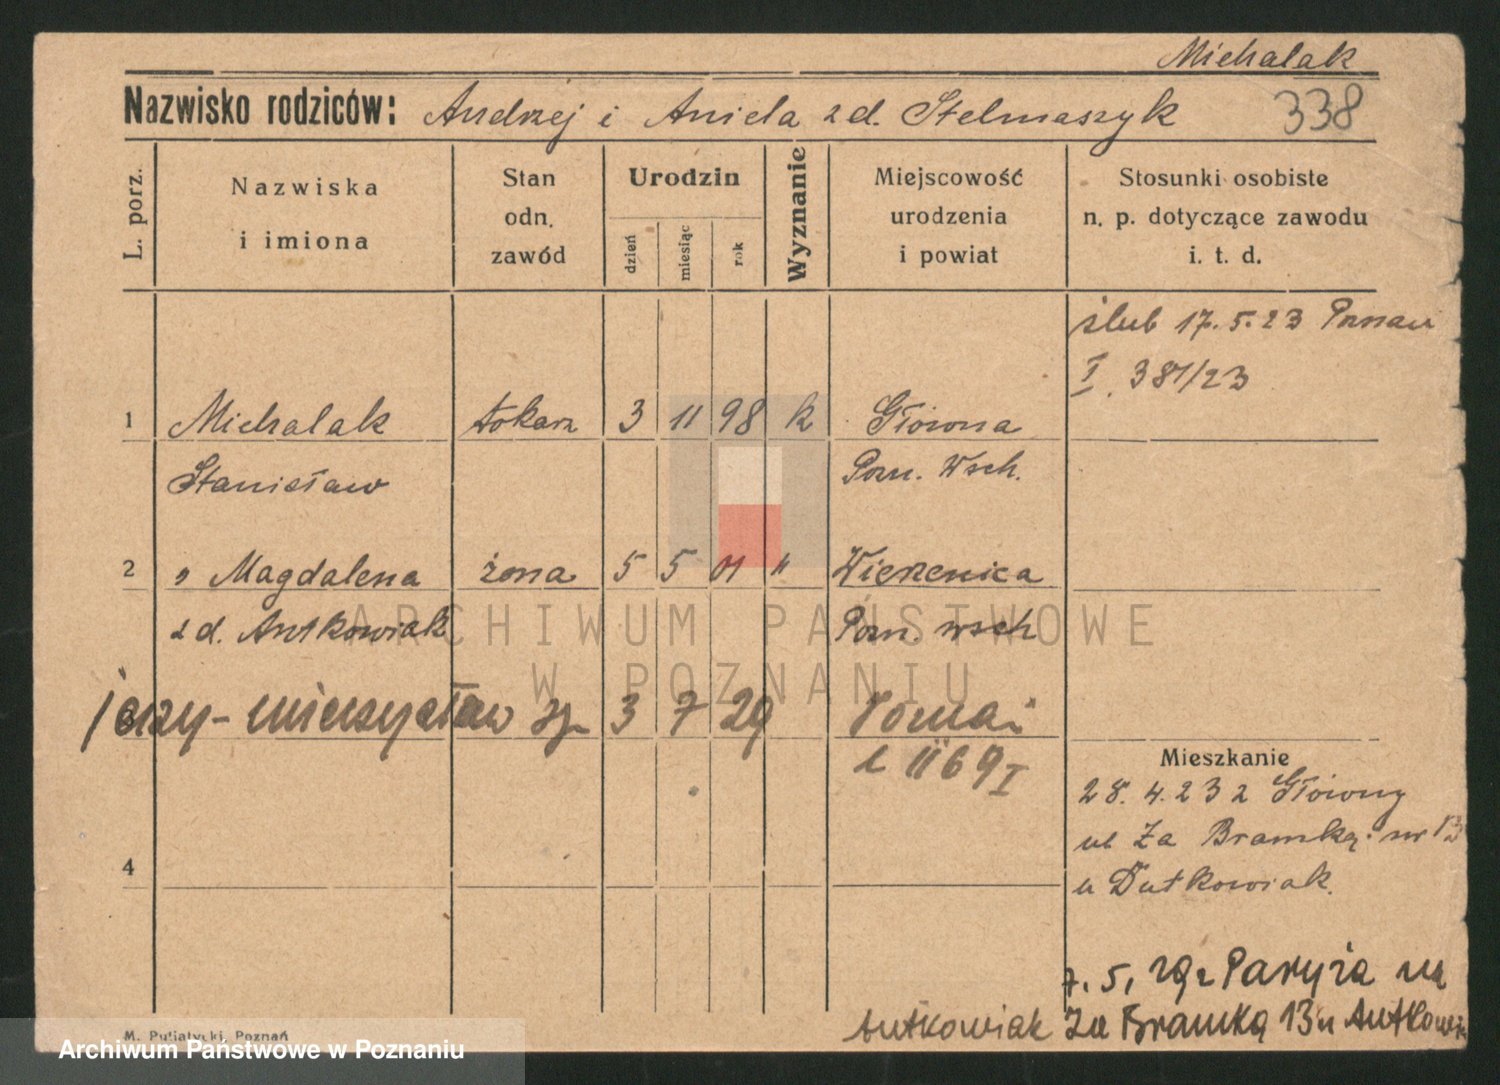 Michalak
Nazwisko rodziców: Andrzej i Aniela zd. Stelmaszyk 338
L. porz.
Nazwiska
i imiona
Stan
odn.
zawód
Urodzin
dzień
miesiąc
rok
Wyznanie
Miejscowość
urodzenia
i powiat
Stosunki osobiste
n. p. dotyczące zawodu
i. t. d.
ślub 17.5.23 Poznań
I. 381/23
1 Michalak tokarz 3 11 98 k Główna
Stanisław Pozn. Wsch.
2 " Magdalena żona 5 5 01 " Wierzenica
z d. Antkowiak Pozn. wsch
3 Jerzy-Mieczysław 3 7 29
1169 I
Mieszkanie
28.4.23 z Główny
ul Za Bramką nr 13
u Dutkowiak.
4
7.5.29 z Paryża na
Antkowiak Za Bramką 13 u Antkowiak
M. Putiatycki, Poznań
ARCHIWUM PAŃSTWOWE
W POZNANIU
Archiwum Państwowe w Poznaniu